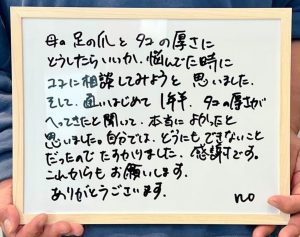 母の足の爪とタコの厚さに
どうしたらいいか、悩んでた時に
ココに相談してみようと思いました。
そして、通いはじめて1年半、タコの厚さが
へってきたと聞いて、本当によかったと
思いました。自分では、どうにもできないこと
だったのでたすかりました、感謝です。
これからもお願いします。
ありがとうございます。
no